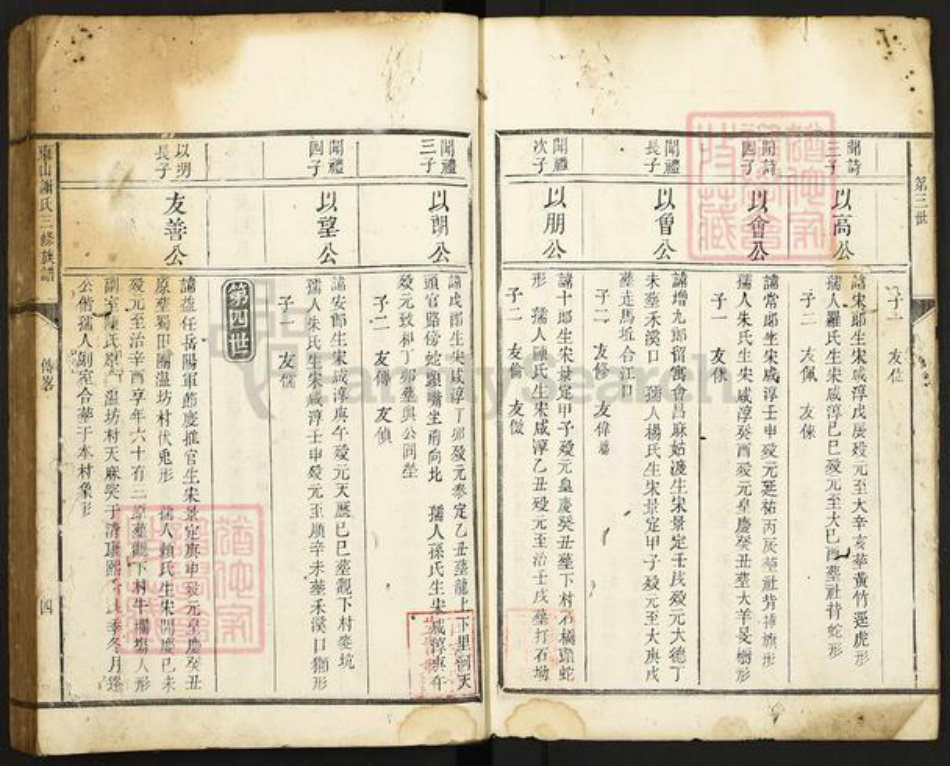 第三世
開詩
三子
以高公
諱宋郎生宋咸淳戊辰歿元至大辛亥葬黃竹逕虎形
孺人羅氏生宋咸淳己巳歿元至大己酉葬社背蛇形
子二 友佩 友倈
開詩
四子
以會公
諱常郎生宋咸淳壬申歿元延祐丙辰葬社背掃旗形
孺人朱氏生宋咸淳癸酉歿元皇慶癸丑葬大羊形
子一 友俅
開禮
長子
以魯公
諱增九郎留寓會昌麻姑漫生宋景定壬戌歿元大德丁
未葬禾溪口 孺人楊氏生宋景定甲子歿元至大庚戌
葬走馬坵合江口
子二 友修 友偉
開禮
次子
以朋公
諱十郎生宋景定甲子歿元皇慶癸丑葬下村石橋頭蛇
形 孺人陳氏生宋咸淳乙丑歿元至治壬戌葬打石坳
子二 友倫 友儆
開禮
三子
以朗公
諱戊郎生宋咸淳丁卯歿元泰定乙丑葬龍上下里洞天
頭官路傍蛇頭嘴坐南向北 孺人孫氏生宋咸淳庚午
歿元致和丁卯葬與公同塋
子二 友傳 友偵
開禮
四子
以望公
諱安郎生宋咸淳庚午歿元天曆己巳葬觀下村婁坑
孺人朱氏生宋咸淳壬申歿元至順辛未葬禾溪口獅形
子一 友儒
第四世
以朋
長子
友善公
諱益任岳陽軍節慶推官生宋景定庚申歿元皇慶癸丑
原葬蜀田團溫坊村伏兎形 孺人賴氏生宋開慶己未
歿元至治辛酉享年六十有三原葬觀下村牛欄塘人形
副室陳氏原葬溫坊村天麻窠于清康熙季冬月遷
公偕孺人副室合葬于本村象形
東山謝氏三修族譜
四
FamilySearch